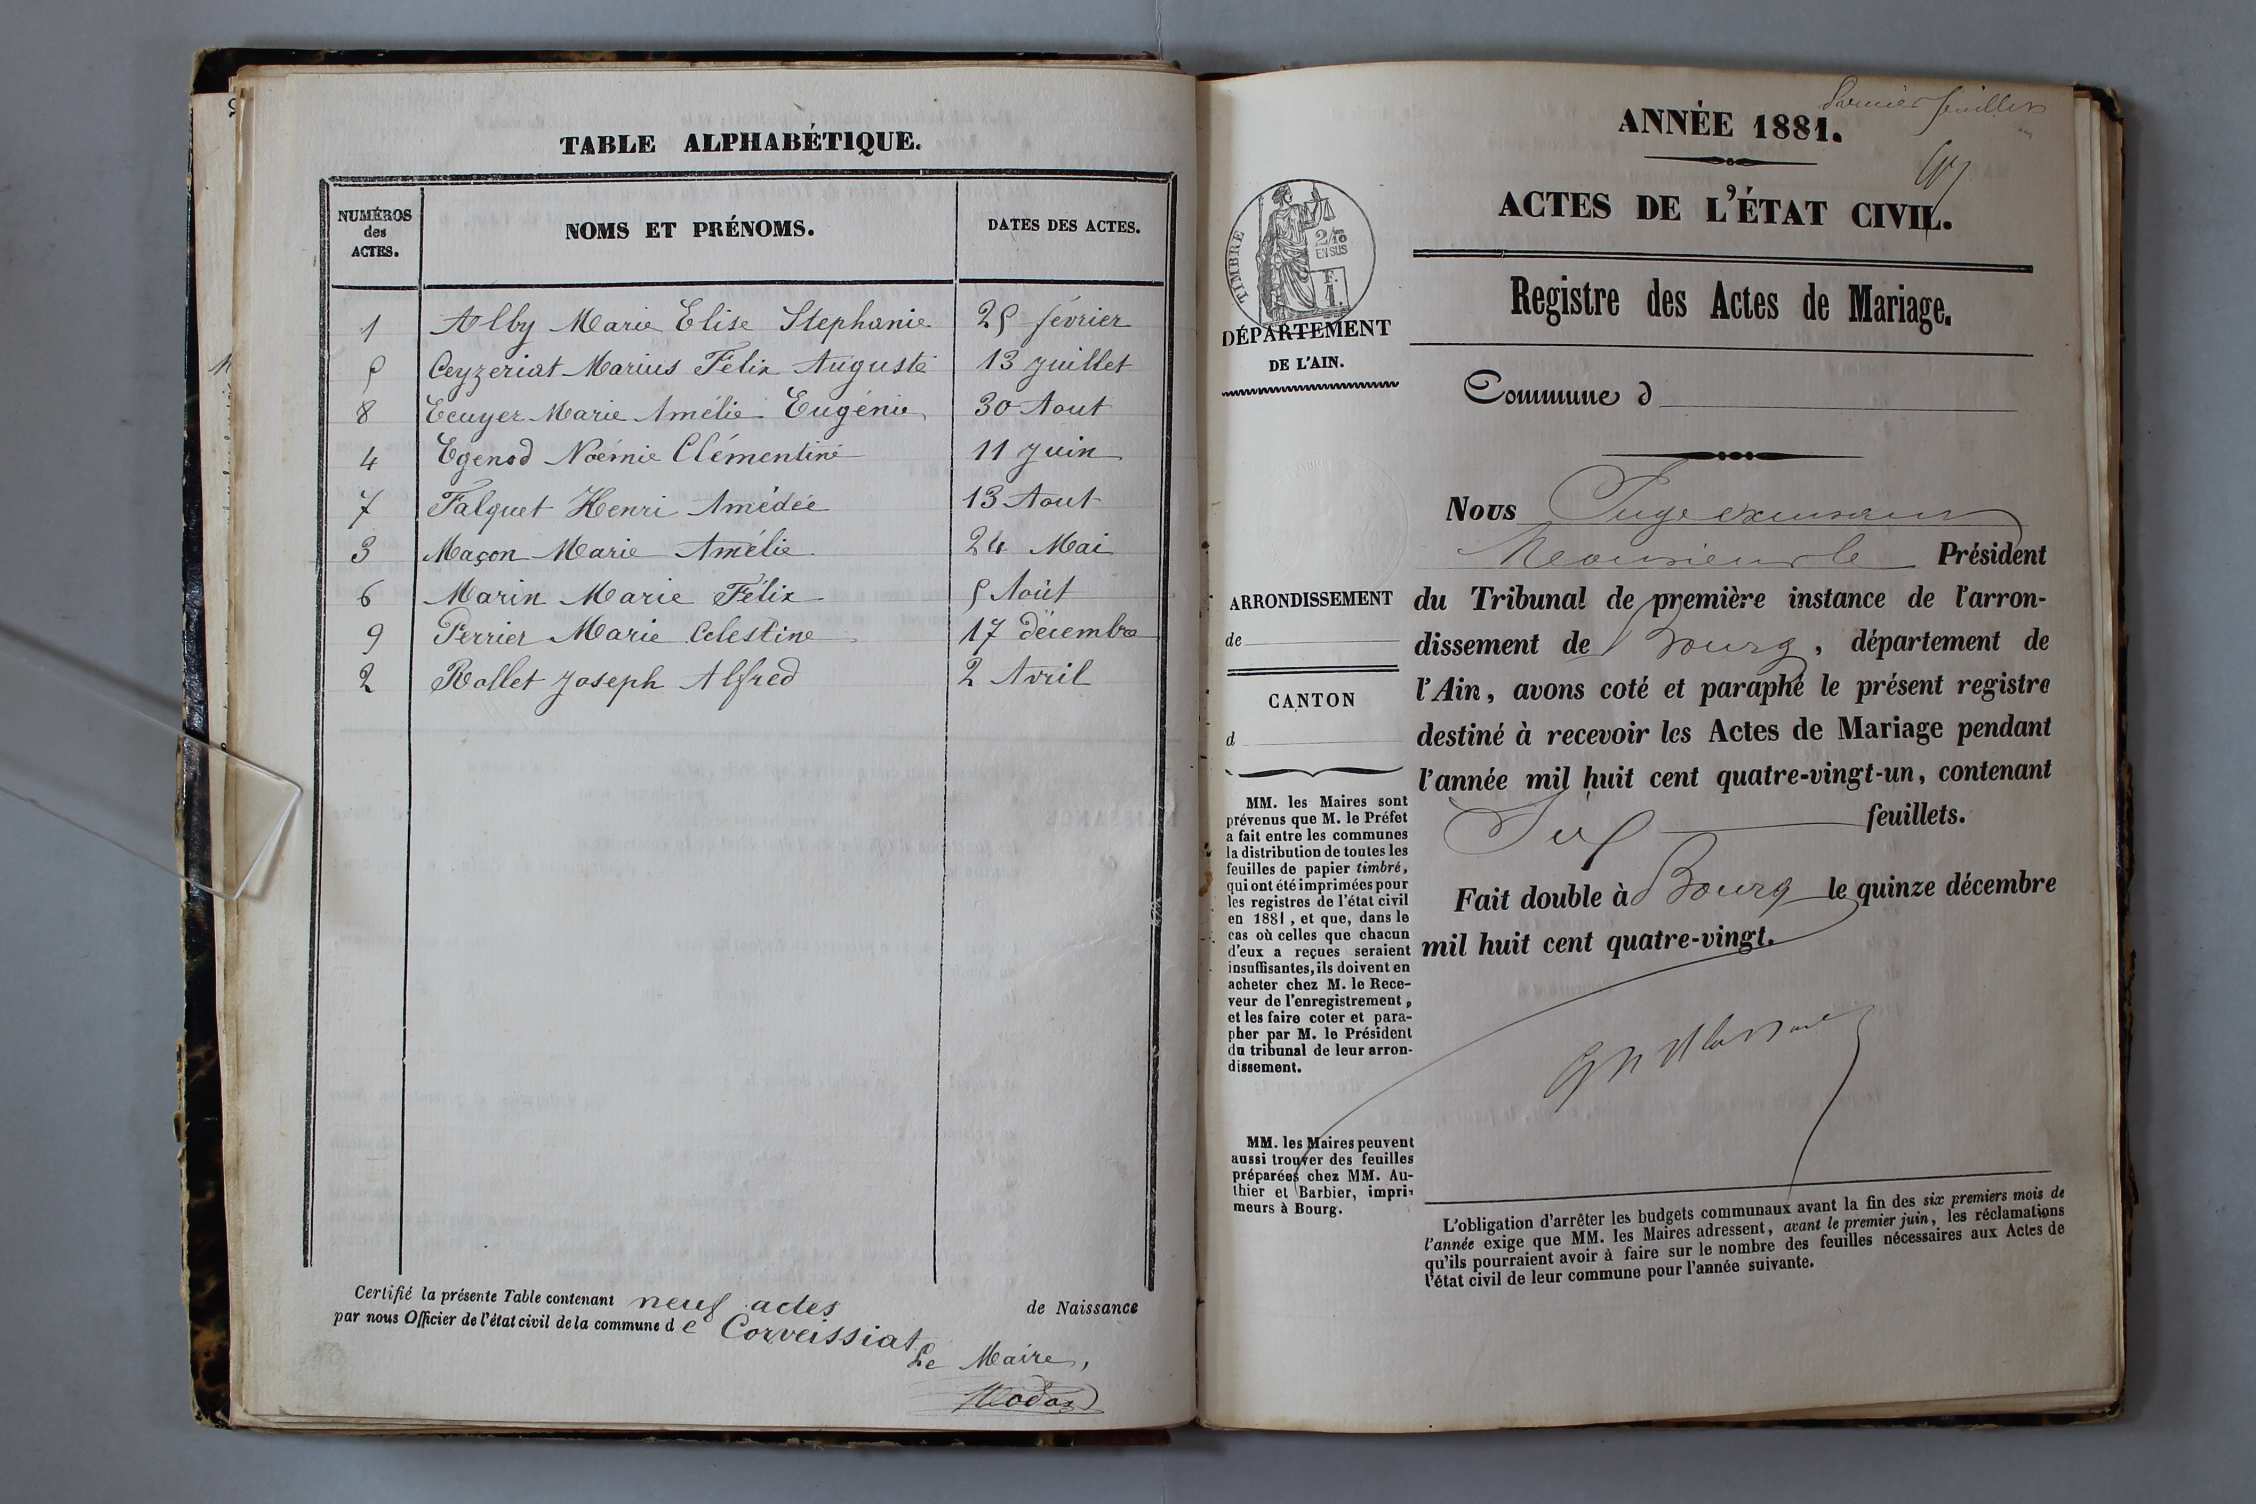 TABLE ALPHABÉTIQUE.
NUMÉROS des ACTES.
NOMS ET PRÉNOMS.
DATES DES ACTES.
1 Alby Marie Elise Stephanie 25 février
5 Ceyzeriat Marius Felix Auguste 13 juillet
8 Ecuyer Marie Amélie Eugénie 30 Aout
4 Egenod Noémie Clémentine 11 juin
7 Falquet Henri Amédée 13 Aout
3 Maçon Marie Amélie 24 Mai
6 Marin Marie Félix 5 Août
9 Perrier Marie Celestine 17 décembre
2 Rollet Joseph Alfred 2 Avril
Certifié la présente Table contenant neuf actes de Naissance
par nous Officier de l'état civil de la commune de Corveissiat
Le Maire,
feuillet
ANNÉE 1881.
ACTES DE L'ÉTAT CIVIL.
Registre des Actes de Mariage.
Commune d
TIMBRE
2/10
EN SUS
F.
1.
DÉPARTEMENT
DE L'AIN.
ARRONDISSEMENT
de
CANTON
d
MM. les Maires sont
prévenus que M. le Préfet
a fait entre les communes
la distribution de toutes les
feuilles de papier timbré,
qui ont été imprimées pour
les registres de l'état civil
en 1881, et que, dans le
cas où celles que chacun
d'eux a reçues seraient
insuffisantes, ils doivent en
acheter chez M. le Rece-
veur de l'enregistrement,
et les faire coter et para-
pher par M. le Président
du tribunal de leur arron-
dissement.
MM. les Maires peuvent
aussi trouver des feuilles
préparées chez MM. Au-
thier et Barbier, impri-
meurs à Bourg.
Nous Juge
Monsieur le Président
du Tribunal de première instance de l'arron-
dissement de Bourg, département de
l'Ain, avons coté et paraphé le présent registre
destiné à recevoir les Actes de Mariage pendant
l'année mil huit cent quatre-vingt-un, contenant
Six feuillets.
Fait double à Bourg le quinze décembre
mil huit cent quatre-vingt.
L'obligation d'arrêter les budgets communaux avant la fin des six premiers mois de
l'année exige que MM. les Maires adressent, avant le premier juin, les réclamations
qu'ils pourraient avoir à faire sur le nombre des feuilles nécessaires aux Actes de
l'état civil de leur commune pour l'année suivante.